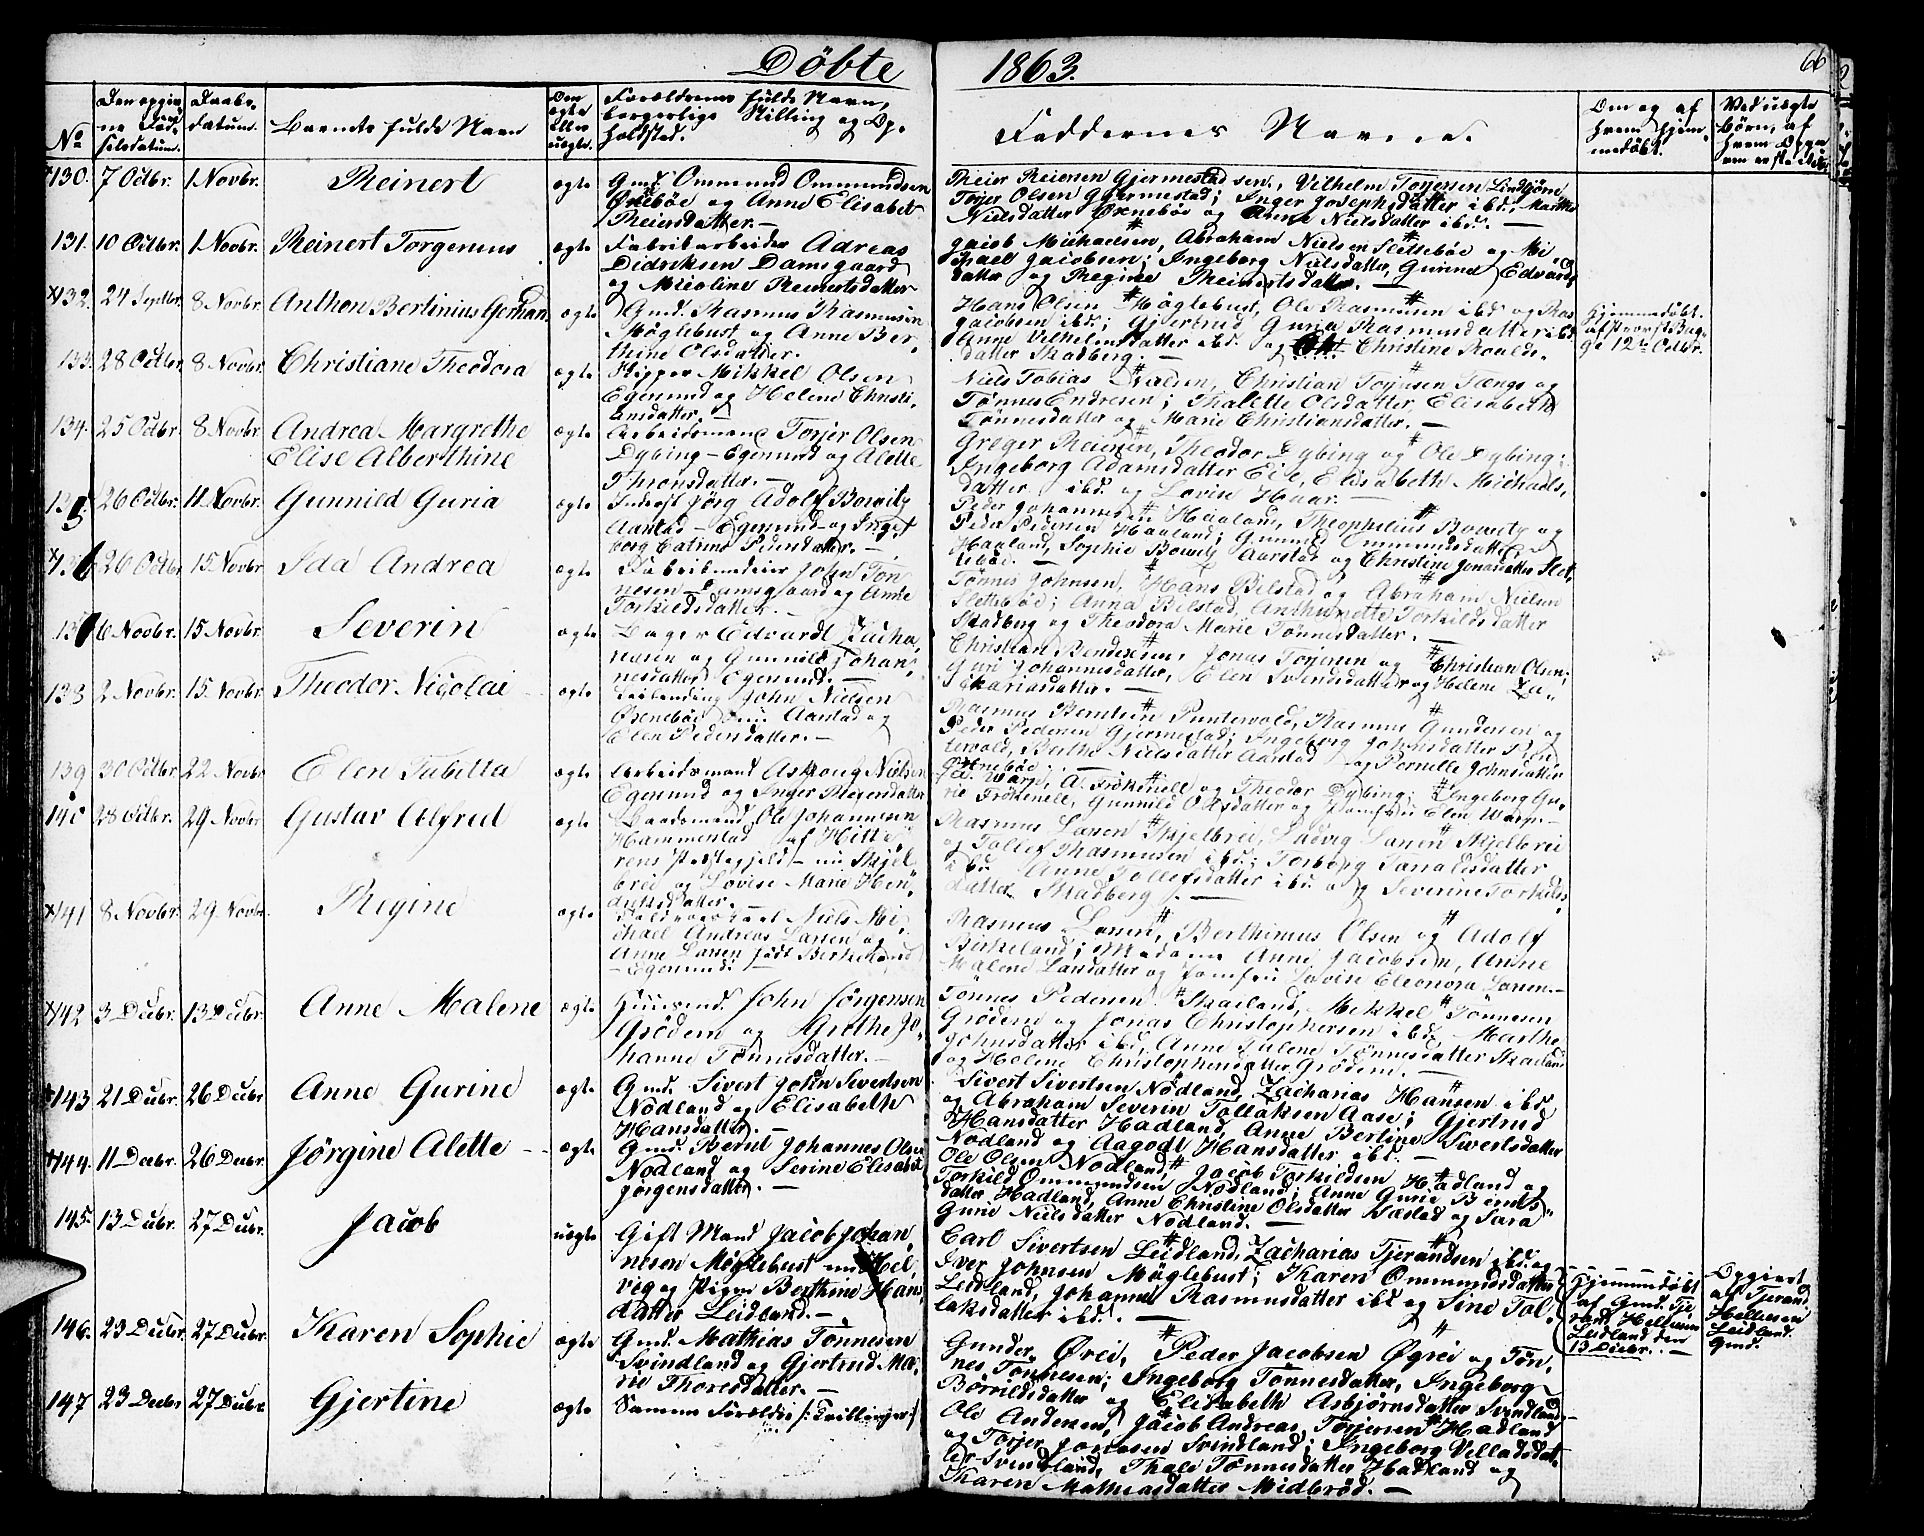 Döbte 1863.
66
No
Den opgiv
ne Fød
selsdatum.
Daabs-
datum.
Barnets fulde Navn
Om
ægte
eller
uægte.
Forældrenes fulde Navn,
borgerlige Stilling og Op-
holdsted.
Faddernes Navne.
Om og af
hvem hjem-
medöbt.
Ved uægte
Börn, af
hvem Opga
ven er
130. 7 Octbr. 1 Novbr. Reinert ægte
Gmd. Ommund Ommundsen
Øxnebøe og Anne Elisabet
Reiersdatter. —
Reier Reiersen Gjermestad sen., Vilhelm Torjersen Lindtjörn,
Torjer Olsen Gjermestad; Inger Josephsdatter ibd., Marthe
Nielsdatter Øxnebøe og Anne Nielsdatter ibd. —
131. 10 Octbr. 1 Novbr. Reinert Torgenius ægte
Fabrikarbeider Adreas
Didriksen Damsgaard
og Mecline Reinertsdatter
Jacob Michaelsen, Abraham Nielsen Slettebøe og Mi
chael Jacobsen; Ingeborg Nielsdatter, Gurine Edvards
datter og Regine Reinertsdatter. —
132. 24 Septbr. 8 Novbr. Anthon Bertinius Gerhard ægte
Gmd. Rasmus Rasmusen
Møglebust og Anne Ber-
thine Olsdatter.
Hans Olsen Møglebust, Ole Rasmusen ibd. og Ras
Jacobsen ibd.; Gjertrud Guria Rasmusdatter ibd.
Anne Vilhelmsdatter ibd. og Christine Roalds-
datter Skadberg. —
Hjemmedöbt
12te Octbr.
133. 28 Octbr. 8 Novbr. Christiane Theodora ægte
Skipper Mikkel Olsen
Egersund og Helene Christi-
ansdatter. —
Niels Tobias Nielsen, Christian Torjusen Tængs og
Tønnes Endresen; Thalette Olsdatter, Elisabeth
Tønnesdatter og Marie Christiansdatter. —
134. 25 Octbr. 8 Novbr. Andrea Margrethe
Elise Alberthine ægte
Arbeidsmand Torjer Olsen
Dybing — Egersund og Alette
Thronsdatter. —
Greger Reiersen, Theodor Dybing og Ole Dybing;
Ingeborg Adamsdatter Eie, Elisabeth Michaels-
datter ibd. og Lovise Haar. —
135 26 Octbr. 11 Novbr. Gunnild Guria ægte
Jörg Adolf Bowitz
Aarstad — Egersund og Inge-
borg Catrine Pedersdatter. —
Peder Johannesen Haaland, Theophilius Bowitz og
Peder Pedersen Haaland; Gunnild Ommundsdatter
Haaland, Sophie Bowitz Aarstad og Christine Jonasdatter Slet-
tebøe. —
136 26 Octbr 15 Novbr. Ida Andrea ægte
Fabrikendeier John Tön-
nesen Damsgaard og Anne
Torkildsdatter. —
Tönnes Johnsen, Hans Bilstad og Abraham Nielsen
Slettebøe; Anna Bilstad, Anthonette Torkildsdatter
Skadberg og Theodora Marie Tönnesdatter. —
137 6 Novbr. 15 Novbr. Severin ægte
Bager Edvardt Zacha-
riasen og Gunnild Johan-
nesdatter Egersund. —
Christian Bendixsen, Jonas Torjersen og Christian Olsen;
Guri Johannesdatter, Elen Svendsdatter og Helene Za-
khariasdatter. —
138 2 Novbr. 15. Novbr. Theodor Nicolai ægte
Leilending John Nielsen
Øxnebøe nu Aarstad og
Elen Pedersdatter. —
Rasmus Berntsen Puntervold, Rasmus Gundersen og
Peder Pedersen Gjermestad; Ingeborg Johnsdatter Pun
tervold, Berthe Nielsdatter Aarstad og Pernille Johnsdatter
Øxnebøe. —
139 30 Octbr. 22 Novbr Elen Tabitta ægte
Arbeidsmand Aslong Nielsen
Egersund og Inger Reiersdatter
Warge, A. Frökenell og Theodor Dybing; Ingeborg Gu-
rie Frökenell, Gunnild Olsdatter og Jomfru Elen Warge —
140 28 Octbr. 29 Novbr Gustav Alfred ægte
Baadsmand Ole Johannesen
Hammerstad af Hitte-
röens Præstegjeld — nu Skjel-
brei og Lovise Marie Hen-
driksdatter. —
Rasmus Larsen Skjelbrei, Ludvig Larsen Skjelbrei
og Tollef Rasmusen ibd.; Torborg Tarraldsdatter
ibd. Anne Tollefsdatter ibd. og Severine Torkilds-
datter Skadberg. —
141 8 Novbr. 29. Novbr. Regine ægte
Niels Mi-
chael Andreas Larsen og
Anne Larsen født Berkeland
— Egersund.
Rasmus Larsen, Berthinius Olsen og Adolf
Birkeland; Madame Anne Jacobsen, Anne
Malene Larsdatter og Jomfru Lovise Eleonora Larsen. —
142 3 Decbr. 13 Decbr. Anne Malene ægte
Huusmd. John Jörgensen
Grödem og Grethe Jo-
hanne Tönnesdatter. —
Tönnes Pedersen Skaaland, Mikkel Tönnesen
Grödem og Jonas Christophersen ibd. — Marthe
Johnsdatter ibd., Anne Malene Tönnesdatter Skaaland
og Helene Christophersdatter Grödem. —
143 21 Decbr. 26 Decbr Anne Gurine ægte
Gmd. Sivert John Sivertsen
Nodland og Elisabeth
Hansdatter. —
Sivert Sivertsen Nodland, Zacharias Hansen ibd.
og Abraham Severin Tollaksen Aase; Gjertrud
Hansdatter Hadland, Anne Bertine Sivertsdatter
Nodland og Aagodt Hansdatter ibd. —
144. 11 Decbr. 26 Decbr. Jörgine Alette — ægte
Gmd. Bernt Johannes Olsen
Nodland og Serine Elisabet
Jörgensdatter. —
Ole Olsen Nodland, Jacob Torkildsen Hadland og
Torkild Ommundsen Nodland; Anne Gurie Bernts-
datter Hadland, Anne Christine Olsdatter Sæstad og Sara
Gurie Nielsdatter Nodland. —
145. 13 Decbr. 27 Decbr. Jacob uægte
Gift Mand Jacob Johan-
nesen Møglebust nu Hel-
vig og Pigen Berthine Hans
datter Leidland. —
Carl Sivertsen Leidland, Zacharias Tjerandsen ibd. og
Iver Johnsen Møglebust; Karen Ommundsdatter
Leidland, Johanne Rasmusdatter ibd. og Sine Tol-
laksdatter ibd. —
Hjemmedöbt
af Gmd. Tje-
rand Hellesen
Leidland den
13 Decbr. —
Opgivet
af Tjerand
Hellesen
Leidland.
Gmd.
146. 23 Decbr. 27 Decbr. Karen Sophie ægte
Gmd. Mathias Tönnesen
Svindland og Gjertrud Ma-
rie Thoresdatter. —
Gunder Ørei, Peder Jacobsen Øgrei og Tön-
nes Tönnesen; Ingeborg Tönnesdatter, Ingeborg
Börrildsdatter og Elisabeth Asbjörnsdatter Svindland. —
147 23 Decbr 27 Decbr. Gjertine ægte
Samme Forældre /: Tvillinger :/
Ole Andersen, Jacob Andreas Torjersen Hadland
og Torjer Jonasen Svindland; Ingeborg Velladsdat-
ter Svindland, Thale Tönnesdatter Hadland og
Karen Mathiasdatter Midbröd. —